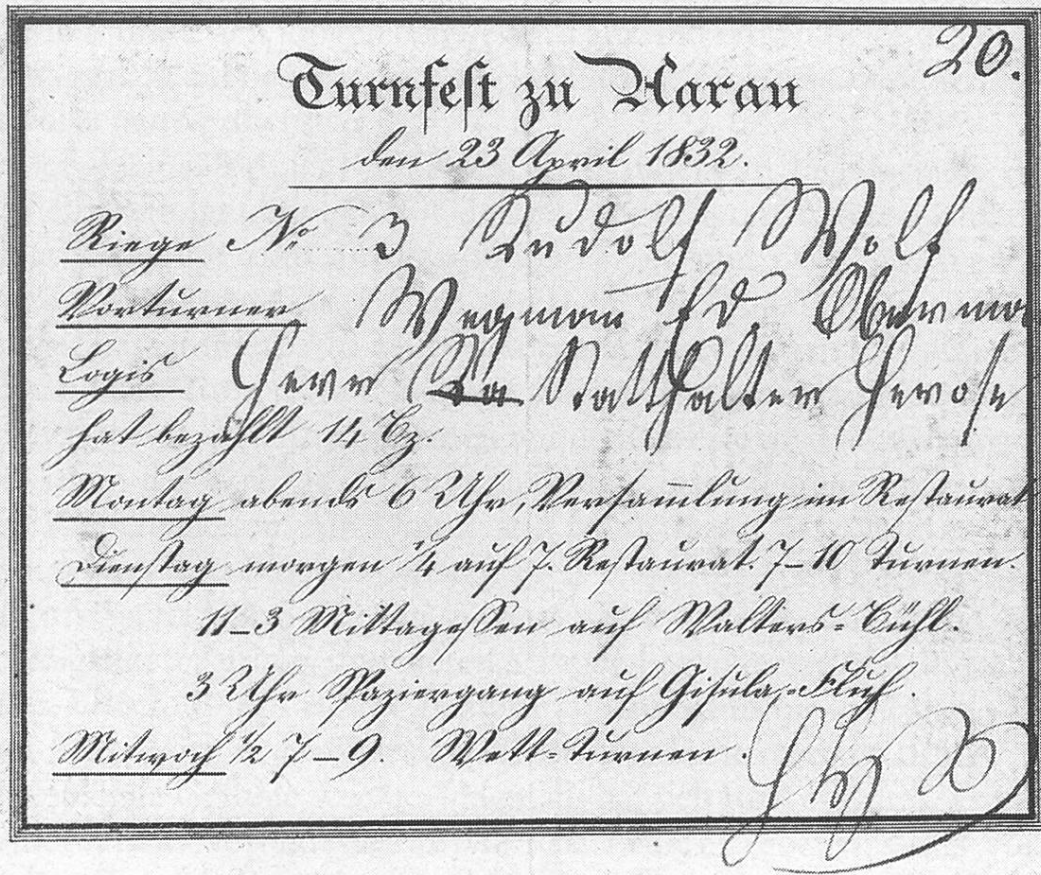 20.
Turnfest zu Aarau
den 23 April 1832.
Riege No 3 Rudolf Wolf
Vorturner Wegman Ed Oberma
Logis Herr Statthalter Herose
hat bezahlt 14 Bz.
Montag abends 6 Uhr, Versam̄lung im Restaurat
Dienstag morgen 1/4 auf 7. Restaurat. 7–10 Turnen.
11–3 Mittagessen auf Walters=Bühl.
3 Uhr Spaziergang auf Gisula=Fluh.
Mitwoch 1/2 7–9. Wett=Turnen.